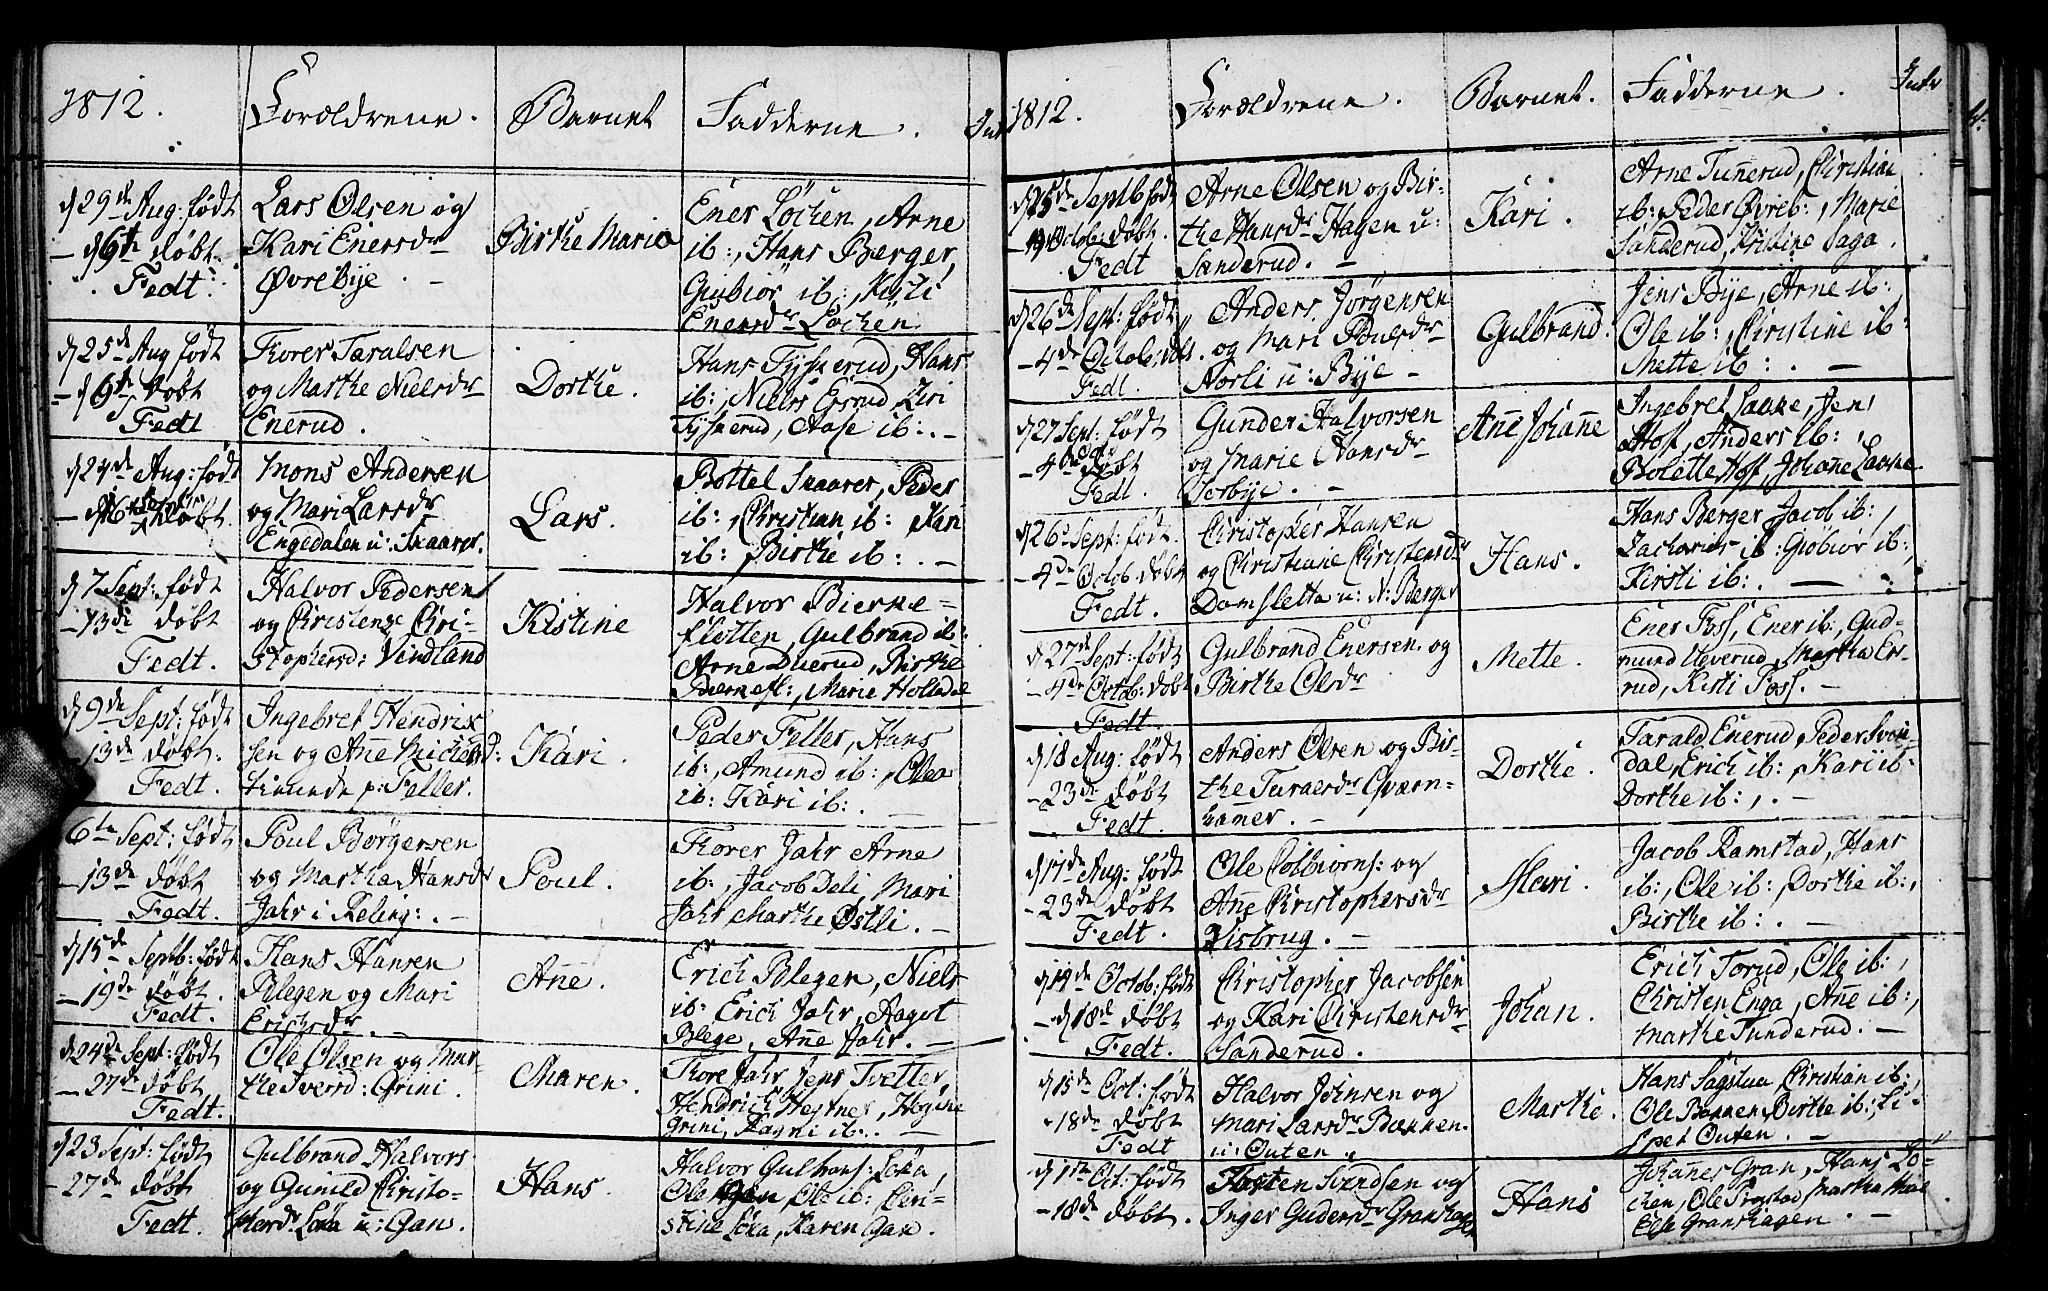 1812.
Forældrene.
Barnet
Fadderne.
d 29de Aug: født
- d 6te døbt.
Fedt.
Lars Olsen og
Kari Enersdr
Øvrebye.
Birthe Maria
Ener Løchen, Arne
ib:, Hans Berger,
Gubiør ib:,
Enersdr Løchen.
d 25de Aug født
- d 6te døbt
Fedt
Korer Taralsen
og Marthe Nielsdr
Enerud.
Dorthe.
Hans Tyskerud, Hans
ib:, Niels Esrud, Ziri
Tyskerud, Aase ib:. -
d 24de Aug: født
døbt.
Mons Andersen
og Mari Larsdr
Engedalen u: Skaarer.
Lars.
Bottel Skaarer, Peder
ib:, Christian ib: Kari
ib: Birthe ib: . -
d 7 Sept: født
- 13de døbt
Fedt.
Halvor Pedersen
og Christense Chri-
stophersd: Vindland
Kistine
Halvor Bierke-
flotten, Gulbrand ib:
Arne Duerud, Birthe
Bierkefl:, Marie Holledal
d 9de Sept: født
- 13de døbt.
Fedt.
Ingebret Hendrik
sen og Anne Michelsd:
p: Feller.
Kari.
Peder Feller, Hans
ib:, Amund ib:, Olea
ib: Kari ib:. -
6te Sept: født
- 13de døbt
Fedt.
Poul Børgersen
og Martha Hansdr
Jahr i Reling: . -
Poul.
Korer Jahr Arne
ib:, Jacob Deli, Mari
Jahr Marthe Østli. -
d 15de Septb: født
- 19de døbt.
Fedt.
Hans Hansen
Blegen og Mari
Erichsdr. -
Anne.
Erich Blegen, Niels
ib: Erich Jahr, Aagot
Blege, Anne Jahr. -
d 24de Sept: født
- 27de døbt
Fedt.
Ole Olsen og Mar-
the Iversd: Grini.
Maren.
Kore Jahr Jens Tvetter,
Hendrich Hestnes,
Grini, Ragni ib:. -
d 23 Sept: født
- 27de døbt
Fedt.
Gulbrand Halvors
og Gunild Christo-
phersdr Løka u: Gan.
Hans.
Halvor Gulbrans: Løka,
Ole Gan Ole ib: Chri-
stine Løka, Karen Gan.
1812.
Forældrene.
Barnet.
Fadderne.
Intr
d 25de Septb født
- 4de Octob: døbt.
Fedt
Arne Olsen og Bir-
the Hansdr Hagen u:
Sanderud. -
Kari.
Arne Tunnerud, Christian
ib: Peder Øvreb:, Marie
Sanderud, Kristine Saga.
d 26de Sept: født
- 4de Octob: døbt.
Fedt.
Anders Jørgensen
og Mari Poulsdr
Norli u: Bye -
Gulbrand.
Jens Bye, Arne ib:
Ole ib:, Christine ib:
Mette ib: . -
d 27 Sept: født
- 4de døbt
Fedt.
Gunder Halvorsen
og Marie Hansdr
Torbye. -
Anne Johanne
Ingebret Laake, Jens
Hoff, Anders ib:
Bolette Hoff, Johanne Laake.
d 26de Sept: født.
- 4de Octob døbt
Fedt.
Christopher Hansen
og Christiane Christensdr
Damsletta u: N: Berger
Hans.
Hans Berger Jacob ib:,
Zacharias ib: Gubiør ib:,
Kirsti ib: . -
d 27de Sept: født
- 4de Octob: døbt
Fedt.
Gulbrand Enersen og
Birthe Olsdr
Mette.
Ener Foss, Ener ib:, Gud-
mund Ueverud, Martha Es-
rud, Kisti Foss. -
d 18 Aug: født
- 23de døbt
Fedt.
Anders Olsen og Bir-
the Turaersdr Qværn-
hamer. -
Dorthe.
Tarald Enerud, Peder Svin
dal, Erich ib:, Kari ib:
Dorthe ib:, . -
d 17de Aug: født
- 23de døbt
Fedt.
Ole Colbiorns: og
Anne Christophersdr
Visbrug. -
Mari.
Jacob Ramstad, Hans
ib:, Ole ib: Dorthe ib:,
Birthe ib: . -
d 14de Octob: født
- d 18de døbt
Fedt.
Christopher Jacobsen
og Kari Christensdr
Sanderud.
Johan.
Erich Torud, Ole ib:,
Christen Enga, Anne ib:,
Marthe Tunderud. -
d 15de Oct: født
- 18de døbt
Fedt
Halvor Johnsen og
Mari Larsdr Bakken.
u: Outen.
Marthe.
Hans Sagstua Christian ib:
Ole Bakken Birthe ib:, Li-
spet Outen. -
d 11te Oct: født
- 18de døbt.
Torsten Svendsen og
Inger Gudersdr Granhagen
Hans
Johanes Gran, Hans Lø-
chen, Ole Prostad, Martha
Else Granhagen. -